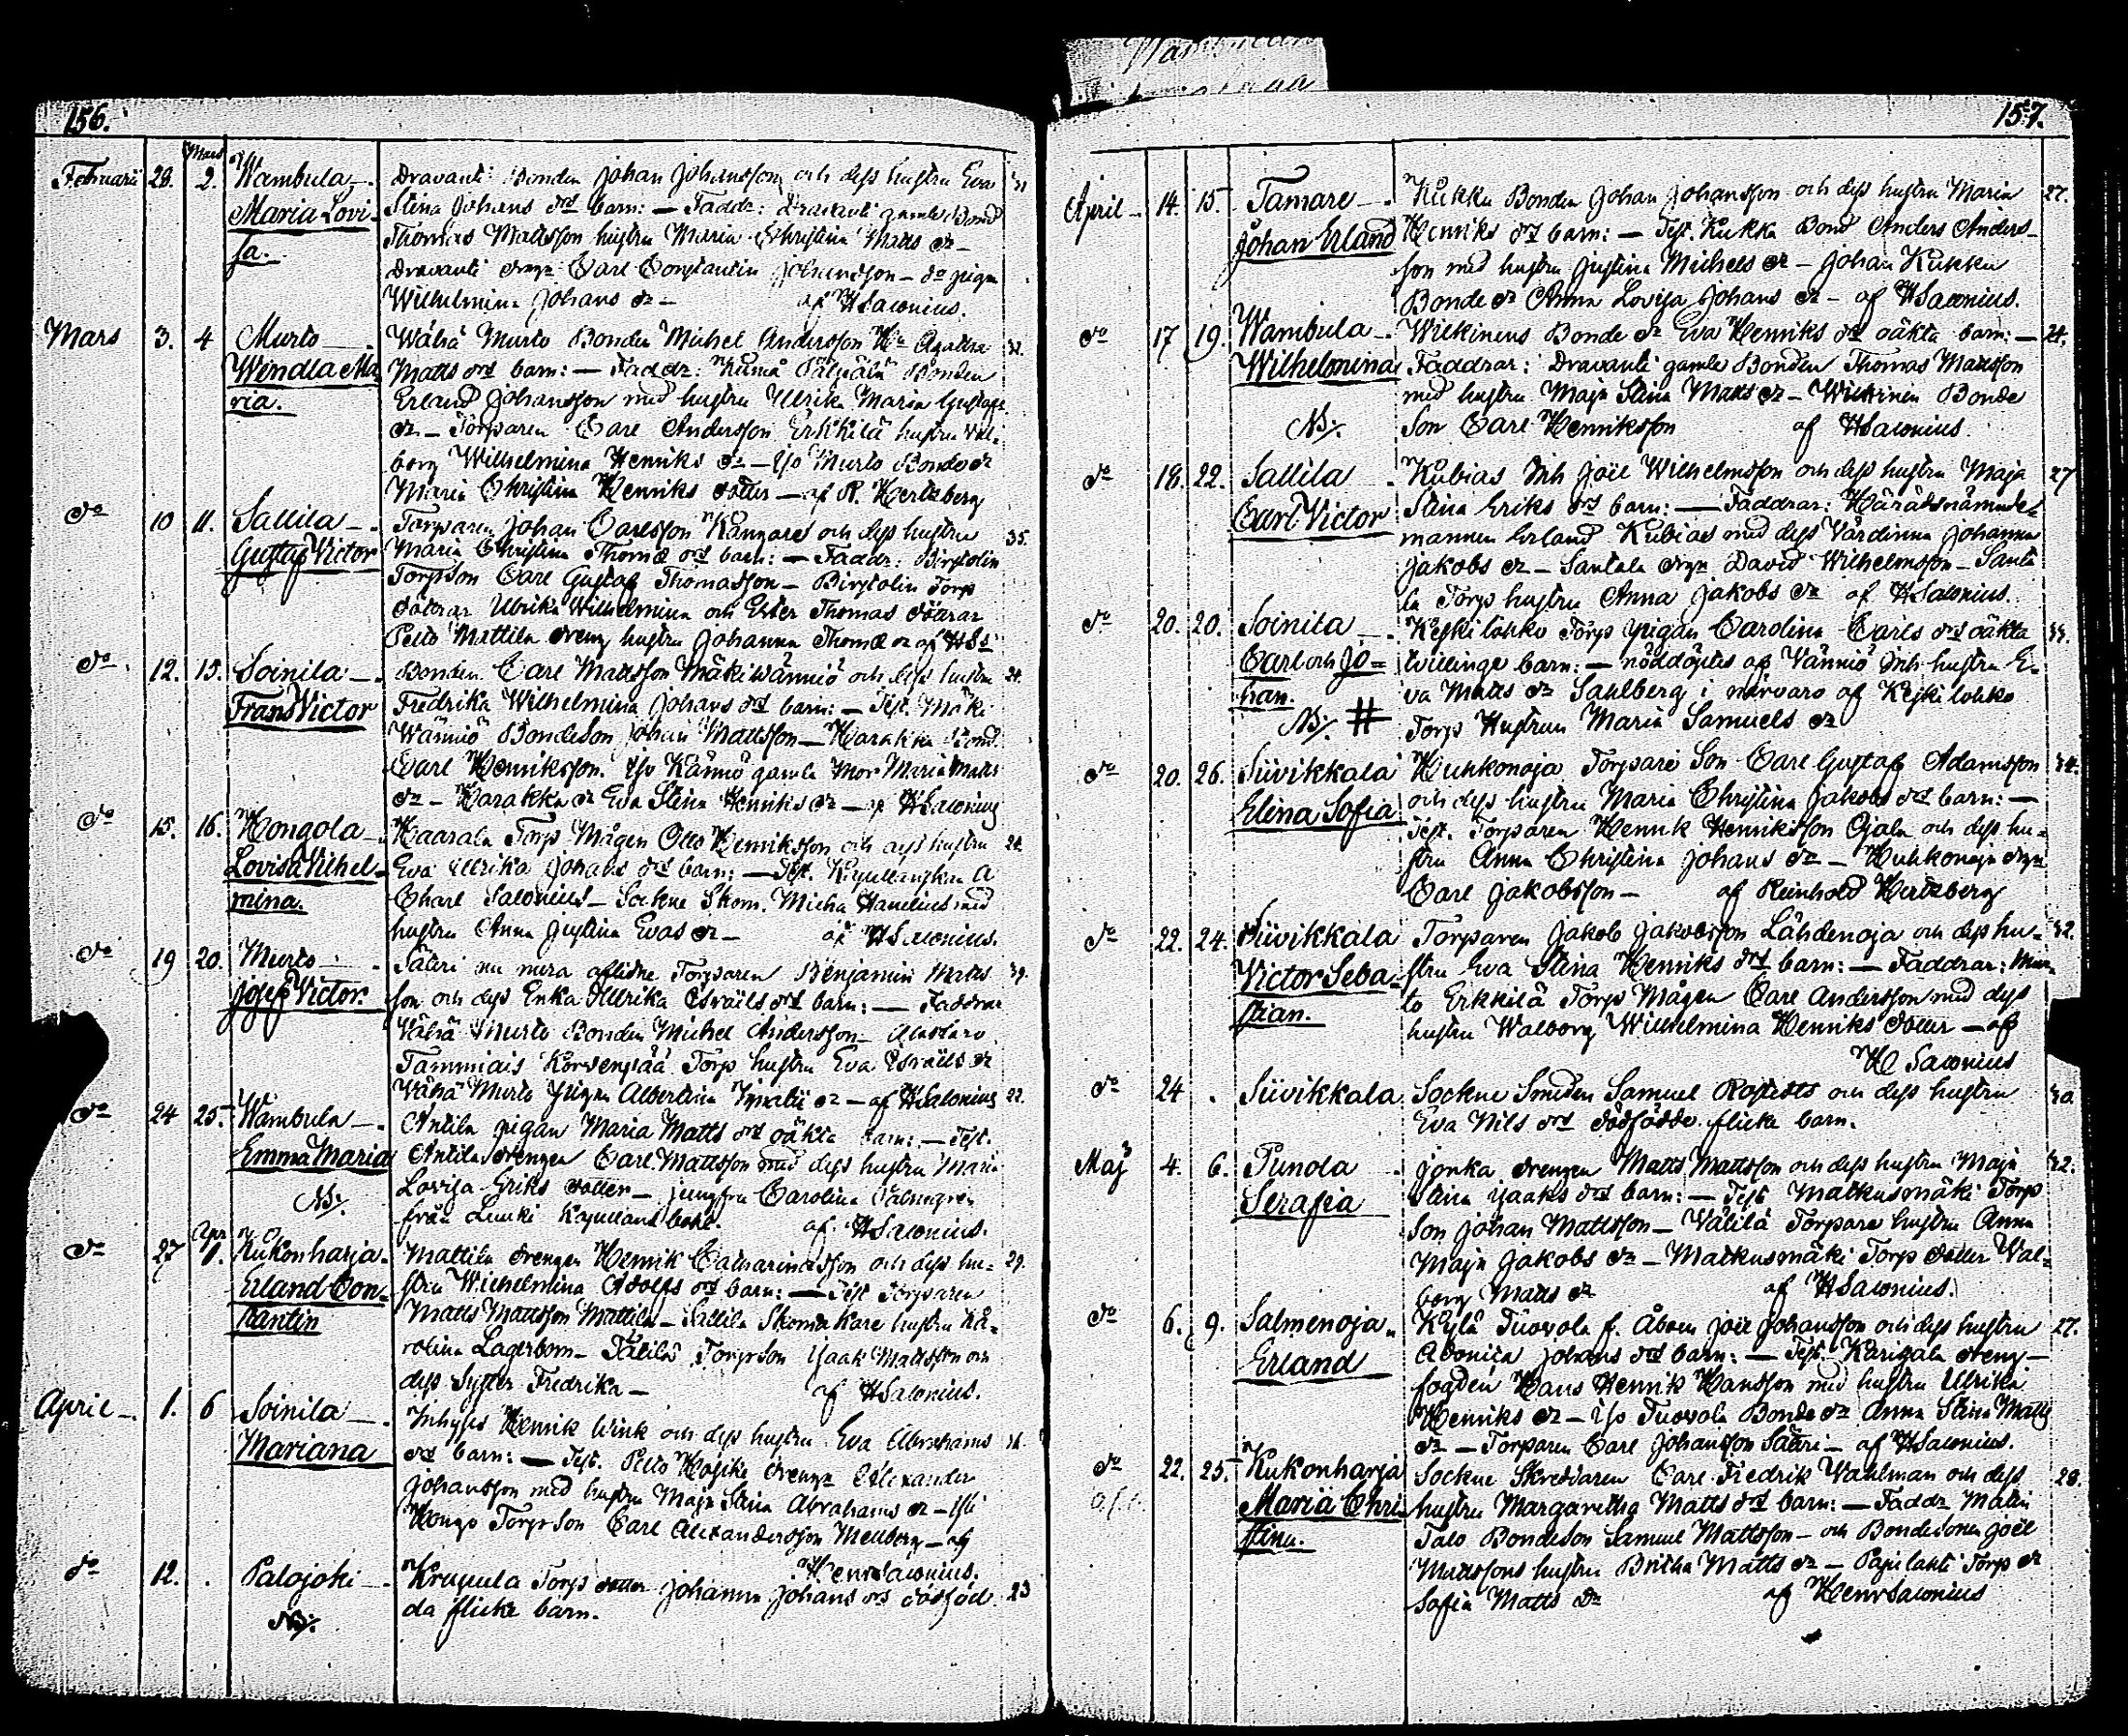 156.
Februarii 28. Mars 2. Wambula Dravanti Bonden Johan Johansson och dess hustru Eva
Maria Lovi- Stina Johans drs barn: — Faddr: Dravanti gamle Bond
sa. Thomas Mattsson hustru Maria Christina Matts dr
Dravanti drng Carl Constantin Johansson — do pigan
Wilhelmina Johans dr — af HSalonius.
Mars 3. 4 Murto Wähä Murto Bonden Michel Andersson Agatha
Wendla Ma- Matts drs barn: — Faddr:
ria. Erland Johansson med hustru Ullrika Maria Gustafs
dr — Torparen Carl Andersson Erkkilä hustru Val-
borg Wilhelmina Henriks dr — Iso Murto Bonde dr
Maria Christina Henriks dotter — af R. Hertzberg
do 10 11. Sallila Torparen Johan Carlsson Kangare och dess hustru 35.
Gustaf Victor Maria Christina Thomæ drs barn: — Faddr:
Torpson Carl Gustaf Thomasson — Torp
döttrar Ulrika Wilhelmina och Ester Thomas döttrar
Pelto Mattila dreng hustru Johanna Thomæ dr af HS
do 12. 15. Soinila Bonden Carl Mattsson Mäkiwänniö och dess hustru
Frans Victor Fredrika Wilhelmina Johans drs barn: — Test. Mäki
Wänniö Bondeson Johan Mattsson — Harakka Bond
Carl Henriksson. gamla Mor Maria Matts
dr — Harakka dr Eva Stina Henriks dr — af HSalonius
do 15. 16. Hongola Haarala Torp Mågen Otto Henriksson och dess hustru
Lovisa Vilhel- Eva Ullrika Johans drs barn: — Test.
mina. Charl Salonius — Sockne Skom. Micha med
hustru Anna Justina Evas dr — af HSalonius.
do 19 20. Murto Säteri nu mera aflidne Torparen Benjamin Matts
Josef Victor. son och dess Enka Ullrika Esraels drs barn: — Faddrar
Vähä Murto Bonden Michel Andersson —
Tammiais Korvenpää Torp hustru Eva Esraels dr
Wähä Murto Pigan Albertina dr — af HSalonius
do 24 25. Wambula Antila pigan Maria Matts drs oäkta barn: — Test.
Emma Maria Antila drengen Carl Mattsson med dess hustru Maria
NB. Lovisa Eriks dotter — jungfru Carolina
från af HSalonius.
do 27 Apr 1. Kukonharja Mattila drengen Henrik Catharinasson och dess hu- 29.
Erland Con- stru Wilhelmina Adolfs drs barn: — Test Torparen
stantin Matts Mattsson Mattila — Sallila Skomakare hustru Ka-
rolina Lagerbom — Torpson Isaak Mattsson och
dess Syster Fredrika — af HSalonius.
April 1. 6 Soinila Inhyses Henrik Wink och dess hustru Eva Abrahams
Mariana drs barn: — Test. Pelto drengen Alexander
Johansson med hustru Maja Stina Abrahams dr —
Hongo Torpson Carl Alexandersson — af
Henr Salonius.
do 12. Palojoki Krupula Torp dotter Johanna Johans drs dödföd- 23
NB. da flicke barn.
157.
April 14. 15. Tamare Kukku Bonden Johan Johansson och dess hustru Maria 27.
Johan Erland Henriks drs barn: — Test. Kukka Bond Anders Anders-
son med hustru Justina Michels dr — Johan Kukku
Bonde dr Anna Lovisa Johans dr — af HSalonius.
do 17 19. Wambula Wilkinens Bonde dr Eva Henriks drs oäkta barn: — 24.
Wilhelmina Faddrar: Dravanti gamle Bonden Thomas Mattsson
med hustru Maja Stina Matts dr — Wilkinen Bonde
NB. Son Carl Henriksson af HSalonius.
do 18. 22. Sallila Kubias Inh Joel Wilhelmsson och dess hustru Maja 27
Carl Victor Stina Eriks drs barn: — Faddrar: Häradsnämnde-
mannen Erland Kubias med dess Värdinna Johanna
Jakobs dr — Santala drng David Wilhelmsson — Santa
la Torp hustru Anna Jakobs dr af HSalonius.
do 20. 20. Soinila Keskilohko Torp pigan Carolina Carls drs oäkta
Carl och Jo- tvillinge barn: — nöddöptes af Vänniö Inh hustru E-
han. va Matts dr Sahlberg i närvaro af Keskilohko
NB. # Torp Hustrun Maria Samuels dr
do 20. 26. Siivikkala Huhkonoja Torpare Son Carl Gustaf Adamsson
Elina Sofia och dess hustru Maria Christina Jakobs drs barn: —
Test. Torparen Henrik Henriksson Ojala och dess hu-
stru Anna Christina Johans dr — Huhkonoja drng
Carl Jakobsson — af Reinhold Hertzberg
do 22. 24. Siivikkala Torparen Jakob Jakobsson Lähdenoja och dess hu-
Victor Seba- stru Eva Stina Henriks drs barn: — Faddrar: Mur-
stian. to Erkkilä Torp Mågen Carl Andersson med dess
hustru Walborg Wilhelmina Henriks dotter — af
H Salonius
do 24 . Siivikkala Sockne Smeden Samuel och dess hustru
Eva Nils drs dödfödde flicke barn.
Maj 4. 6. Punola Jonka drengen Matts Mattsson och dess hustru Maja
Serafia Stina Isaaks drs barn: — Test Matkusmäki Torp
son Johan Mattsson — Välilä Torpare hustru Anna
Maja Jakobs dr — Matkusmäki Torp dotter Wal-
borg Matts dr af HSalonius.
do 6. 9. Salmenoja Kylä Tuovola f. Åboen Joel Johansson och dess hustru 27.
Erland Adonica Johans drs barn: — Test. Karigala dreng-
fogden Hans Henrik Hansson med hustru Ullrika
Henriks dr — Iso Tuovola Bonde dr Anna Stina Matts
dr — Torparen Carl Johansson Sääri — af HSalonius.
do 22. 25. Kukonharja Sockne Skreddaren Carl Fredrik Wahlman och dess 28.
Maria Chri- hustru Margaretha Matts drs barn: — Faddr Matin
stina. Talo Bondeson Samuel Mattsson — och Bondesonen Joel
Mattssons hustru Britha Matts dr — Torp dr
Sofia Matts dr af Henr Salonius